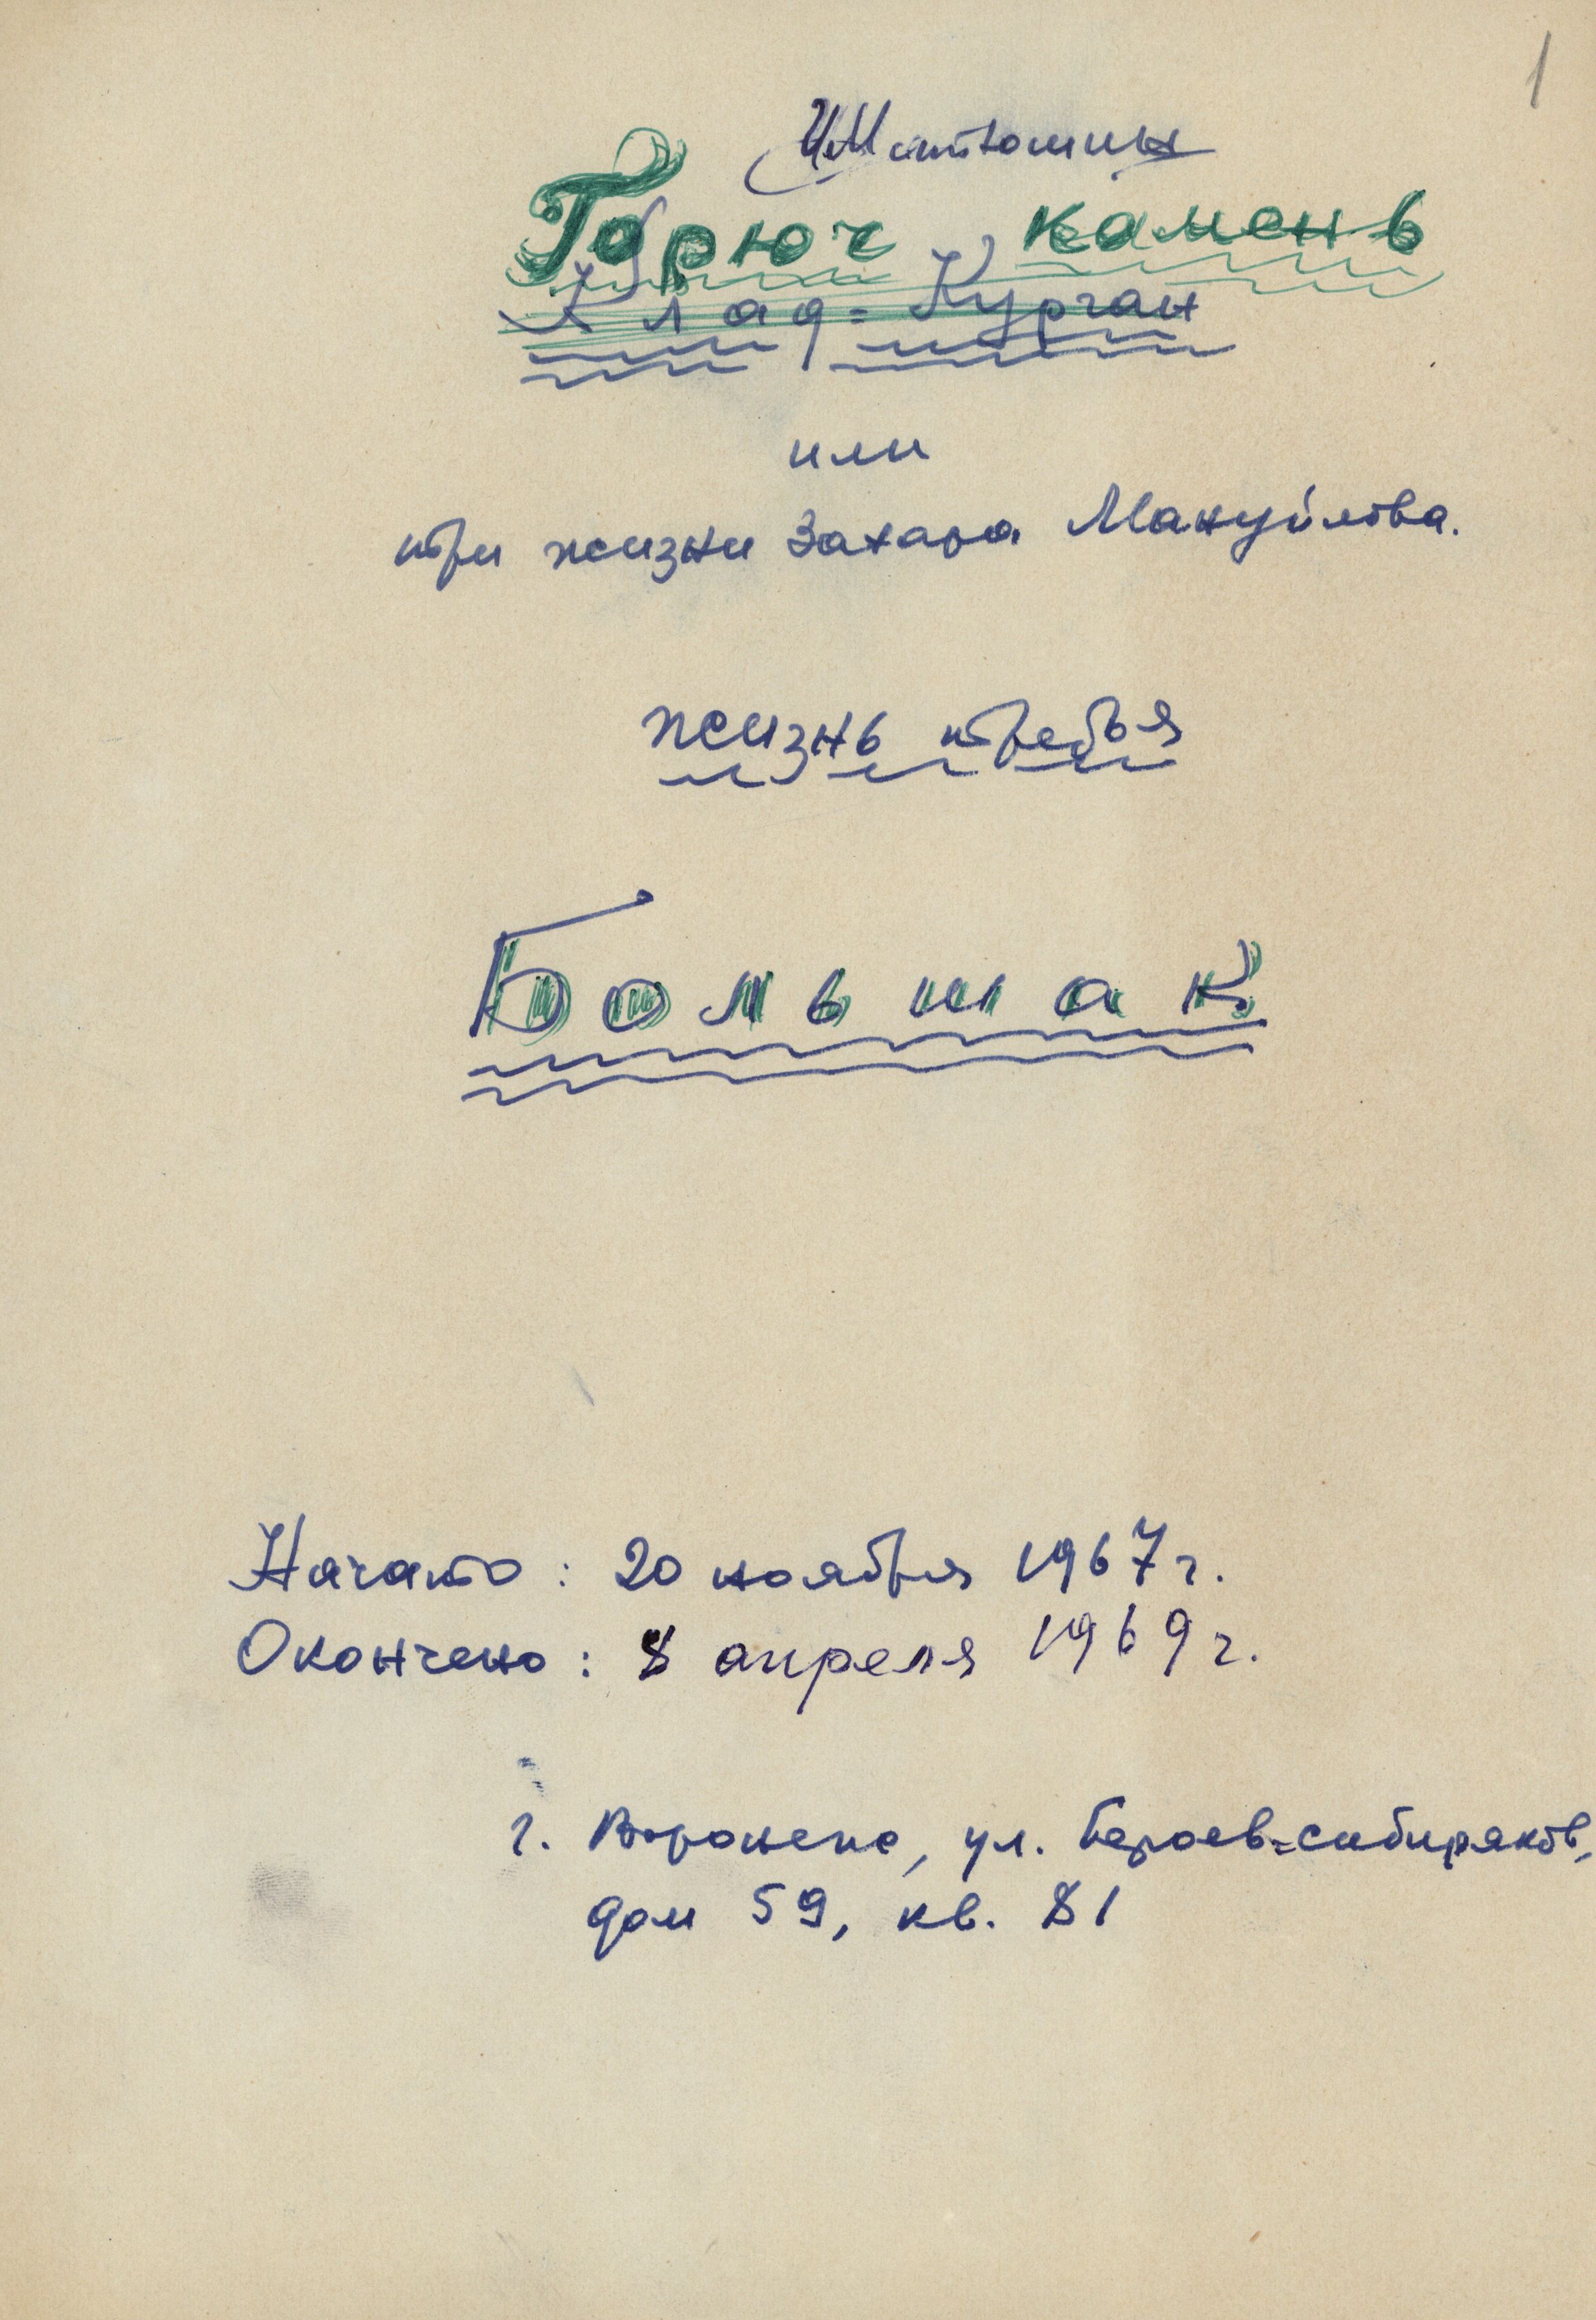 1
И. Матюшин
Горюч камень
Клад-Курган
или
три жизни Захара Мануйлова.
жизнь третья
Большак
Начато: 20 ноября 1967 г.
Окончено: 8 апреля 1969 г.
г. Воронеж, ул. Героев-сибиряков,
дом 59, кв. 81